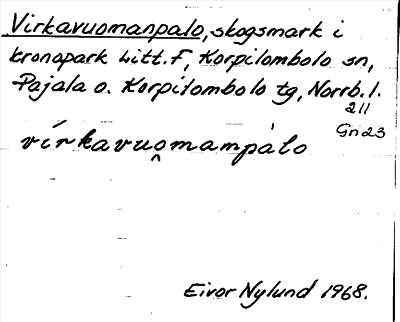 Virkavuomanpalo, skogsmark i
kronopark Litt. F, Korpilombolo sn,
Pajala o. Korpilombolo tg, Norrb. l.
211
Gn 23
vírkavuo̭mampàlo
Eivor Nylund 1968.